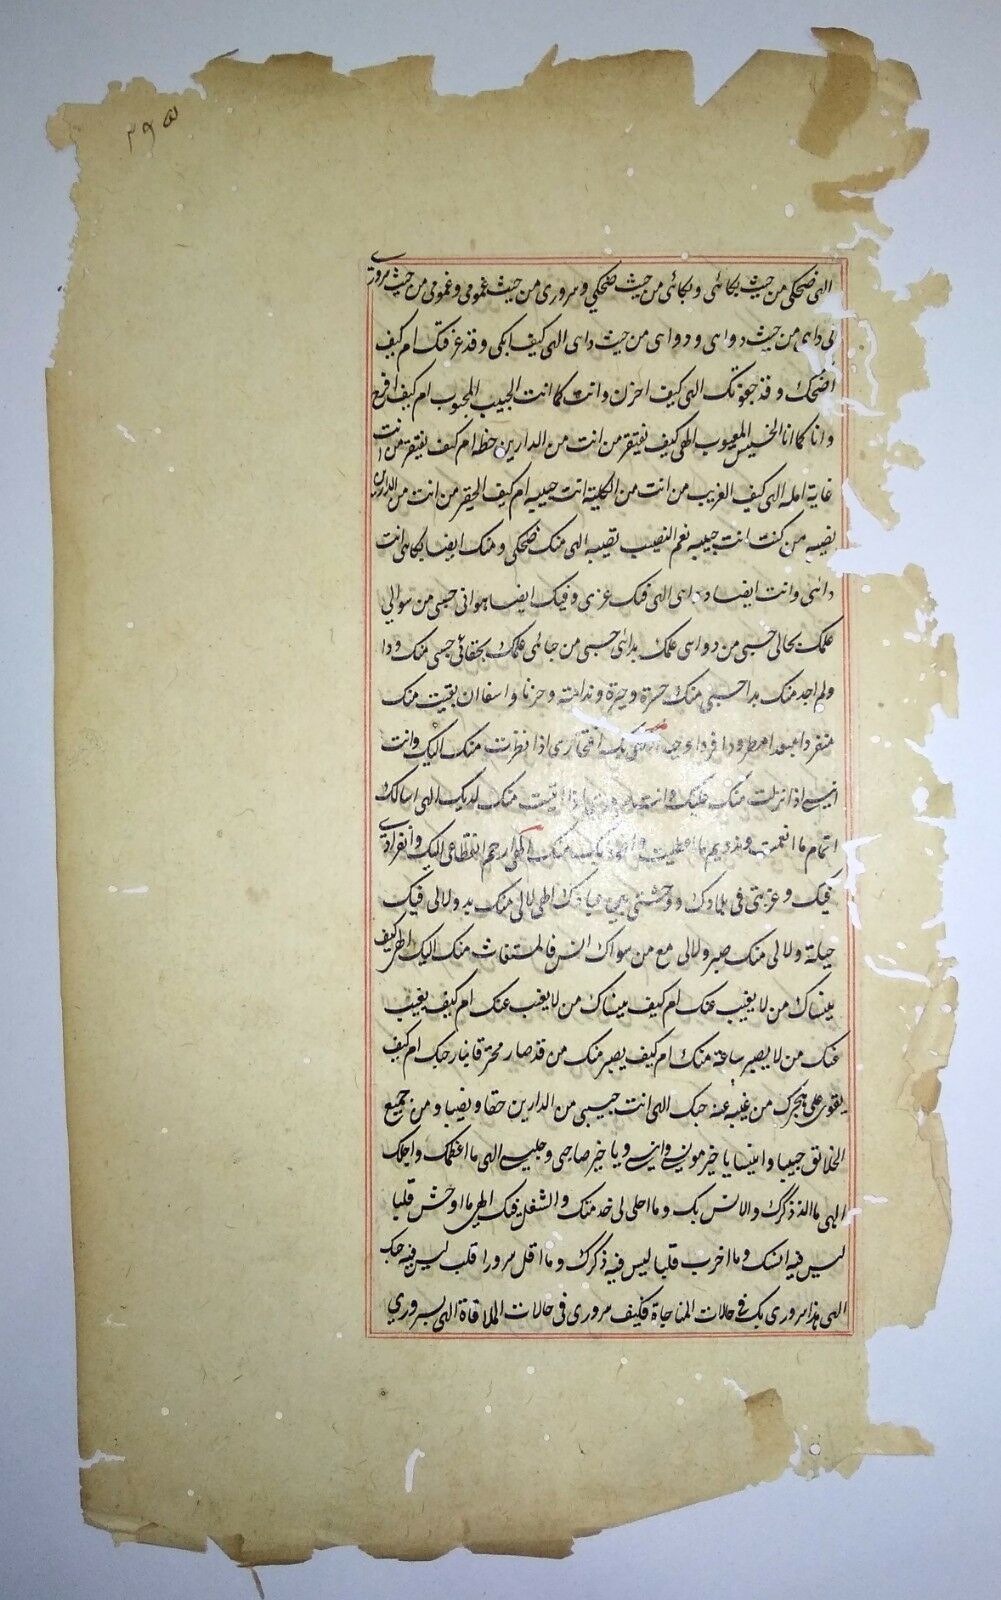 ۳۹۵
الهی ضحکی من حیث بکائی و بکائی من حیث ضحکی و سروری من حیث غمومی و غمومی من حیث سروری
دائی من حیث دوائی و دوائی من حیث دائی الهی کیف ابکی و قد عرفتک ام کیف
اضحک و قد الهی کیف احزن و انت کما انت الحبیب المحبوب ام کیف افرح
و انا کما انا الخسیس المعیوب الهی کیف یفتقر من انت من الدارین حظه ام کیف یفتقر من انت
غایة امله الهی کیف الغریب من انت من الکلیة انت حبیبه ام کیف الحقیر من انت من الدارین
نصیبه من کنت انت حبیبه نعم النصیب نصیبه الهی منک ضحکی و منک ایضا بکائی انت
دائی و انت ایضا دوائی الهی فیک عزی و فیک ایضا هوانی حسبی من سوالی
علمک بحالی حسبی من دوائی علمک بدائی حسبی من علمک حسبی منک
و لم اجد منک بدا حسبی منک حسرة و حیرة و ندامة و حزنا و اسفا ان بقیت منک
منفردا مطرودا فردا بک افتخاری اذا نظرت منک الیک و انت
انیسی اذا نزلت منک علیک و انت اذا منک لدیک الهی اسالک
اتمام ما انعمت و تدویم ما اعطیت منک الهی ارحم انقطاعی الیک و انفرادی
فیک و غربتی فی بلادک و وحشتی بین عبادک الهی لا لی منک بد و لا لی فیک
حیلة و لا لی منک صبر و لا لی مع من سواک انس فالمستغاث منک الیک الهی کیف
ینساک من لا یغیب عنک ام کیف ینساک من لا یغیب عنک ام کیف یغیب
عنک من لا یصبر ساعة منک ام کیف یصبر منک من قد صار محترقا بنار حبک ام کیف
یقوی علی هجرک من حبک الهی انت حسبی من الدارین حظا و نصیبا و من جمیع
الخلائق حبیبا و انیسا یا خیر مونسی و انیسی و یا خیر صاحبی و جلیسی الهی ما اعظمک و اجلک
الهی ما الذ ذکرک و الانس بک و ما احلی لی خدمتک و الشغل فیک الهی ما اوحش قلبا
لیس فیه انسک و ما اخرب قلبا لیس فیه ذکرک و ما اقل سرورا قلب لیس فیه حبک
الهی هذا سروری بک فی حالات المناجاة فکیف سروری فی حالات الملاقاة الهی سروری